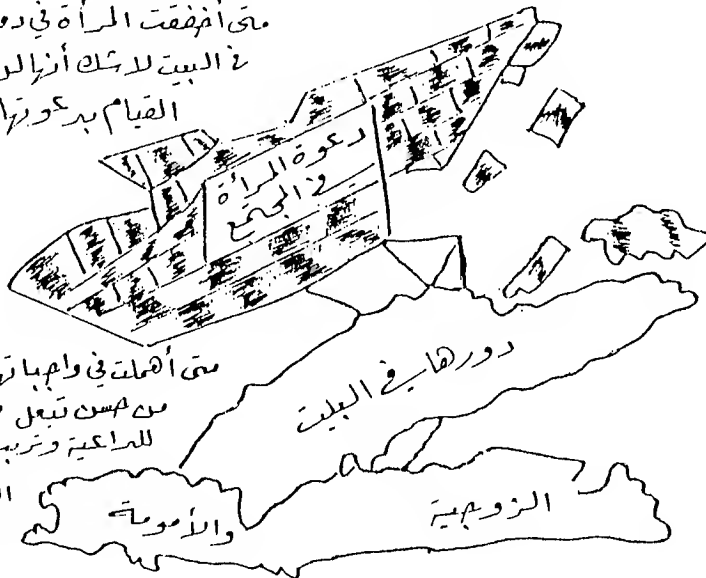 متى أخفقت المرأة في دو
في البيت لا شك أنها لو
القيام بدعوتها
دعوة المرأة
في المجتمع
متى أهملت في واجباتها
من حسن تبعل
للداعية وتربي
دورها في البيت
والأمومة
الزوجية